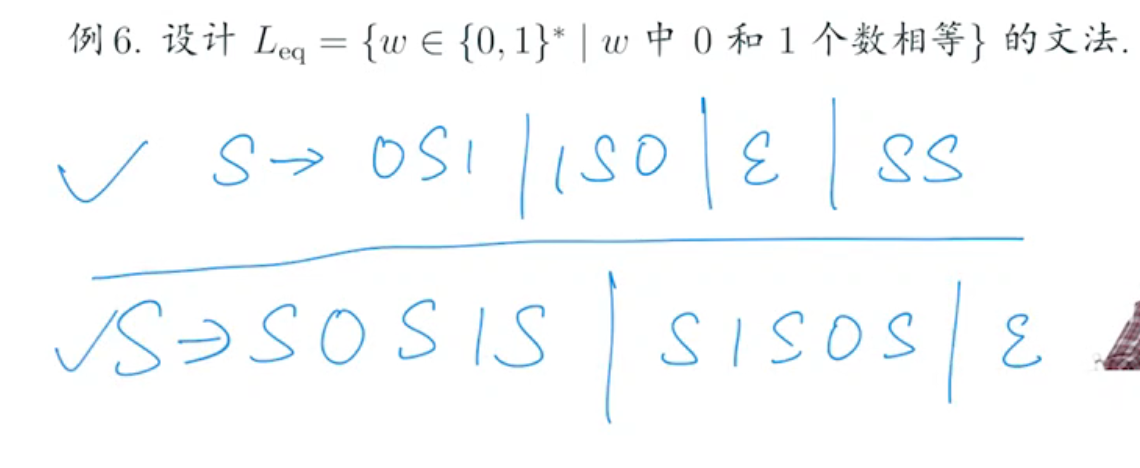 例 6. 设计 L_eq = {w ∈ {0, 1}* | w 中 0 和 1 个数相等} 的文法.
✓ S → 0S1 | 1S0 | ε | SS
✓ S → S0S1S | S1S0S | ε